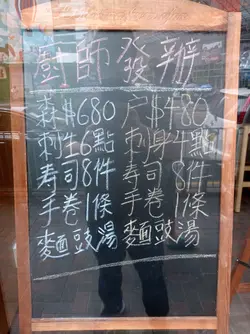 廚師發辦
森$680 戶$480
刺生6點 刺身4點
寿司8件 寿司8件
手卷1條 手卷1條
麵豉湯 麵豉湯